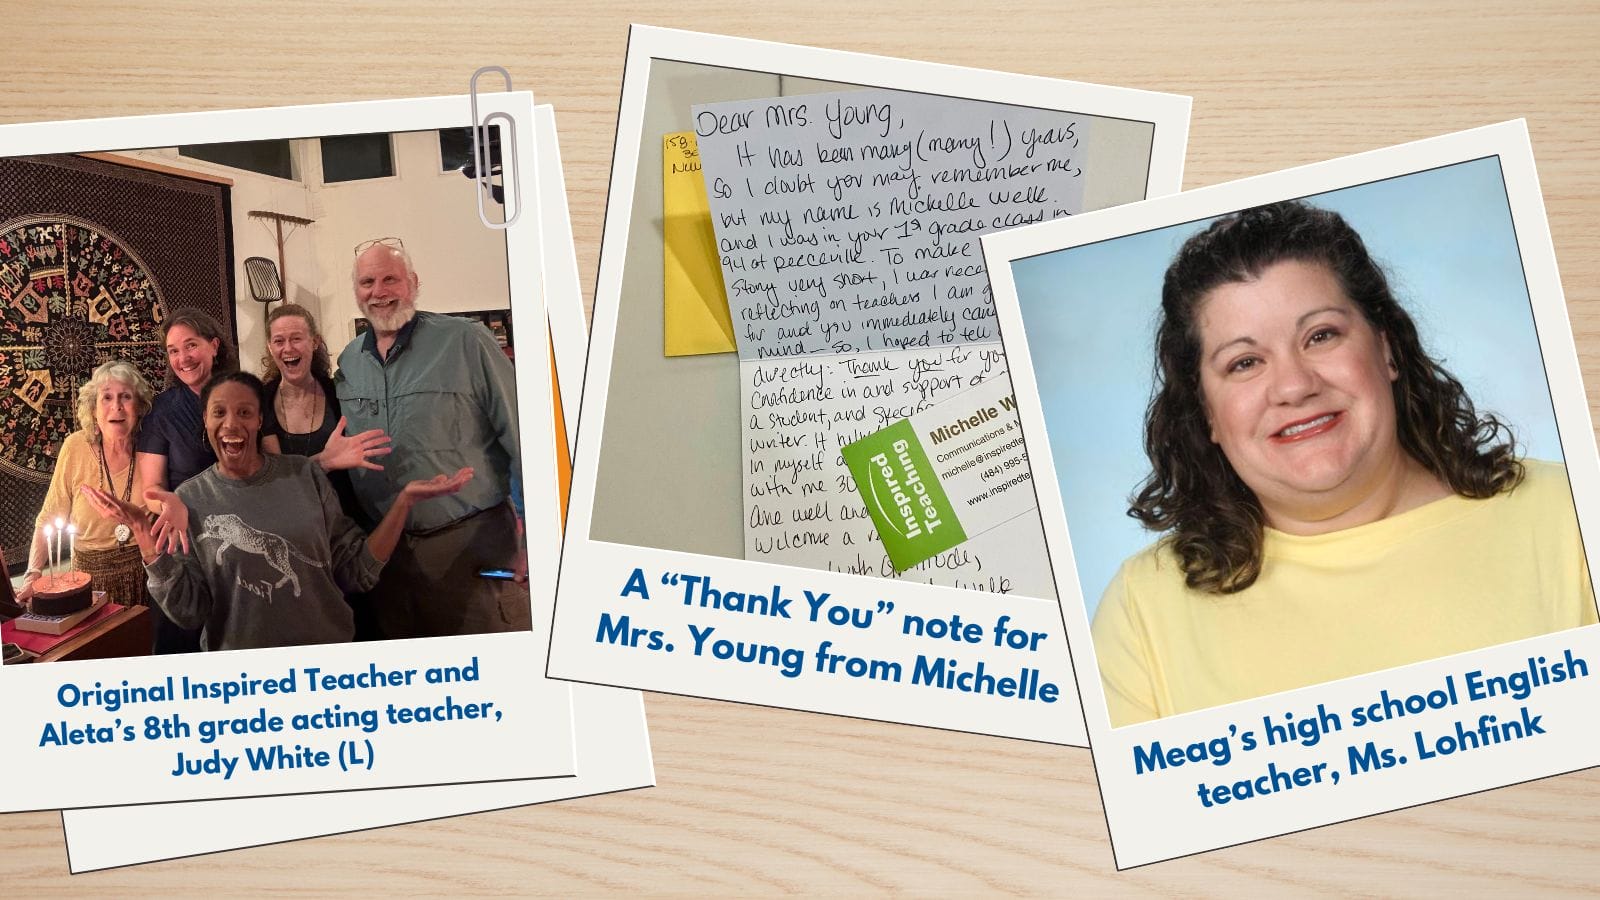 Original Inspired Teacher and
Aleta’s 8th grade acting teacher,
Judy White (L)
Dear Mrs. Young,
It has been many (many!) years,
So I doubt you may remember me,
but my name is Michelle Welk.
and I was in your 1st grade class in
'94 at Reeceville. To make
story very short, I was
reflecting on teachers I am
for and you immediately
mind — So, I hoped to tell
directly: Thank you for
Confidence in and support of
a student, and
writer. It
in myself
with me
are well and
welcome a
with Gratitude,
Welk
Michelle W
Communications &
michelle@inspiredte
(484) 995-5
www.inspiredte
Inspired
Teaching
A “Thank You” note for
Mrs. Young from Michelle
Meag’s high school English
teacher, Ms. Lohfink